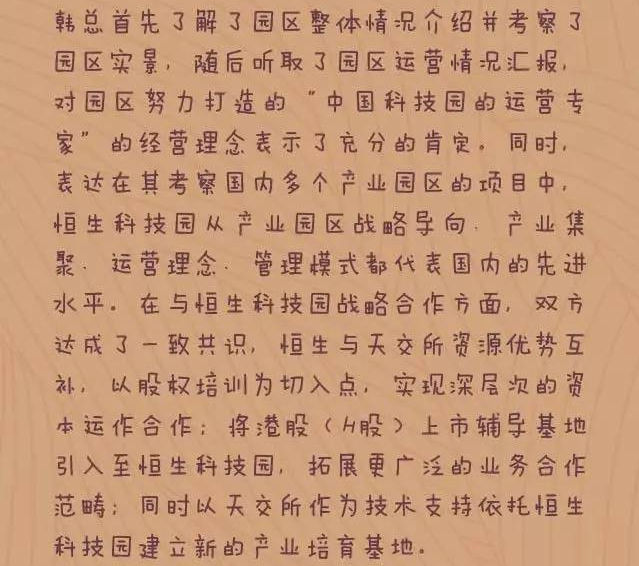 韩总首先了解了园区整体情况介绍并考察了
园区实景，随后听取了园区运营情况汇报，
对园区努力打造的“中国科技园的运营专
家”的经营理念表示了充分的肯定。同时，
表达在其考察国内多个产业园区的项目中，
恒生科技园从产业园区战略导向、产业集
聚、运营理念、管理模式都代表国内的先进
水平。在与恒生科技园战略合作方面，双方
达成了一致共识，恒生与天交所资源优势互
补，以股权培训为切入点，实现深层次的资
本运作合作；将港股（H股）上市辅导基地
引入至恒生科技园，拓展更广泛的业务合作
范畴；同时以天交所作为技术支持依托恒生
科技园建立新的产业培育基地。